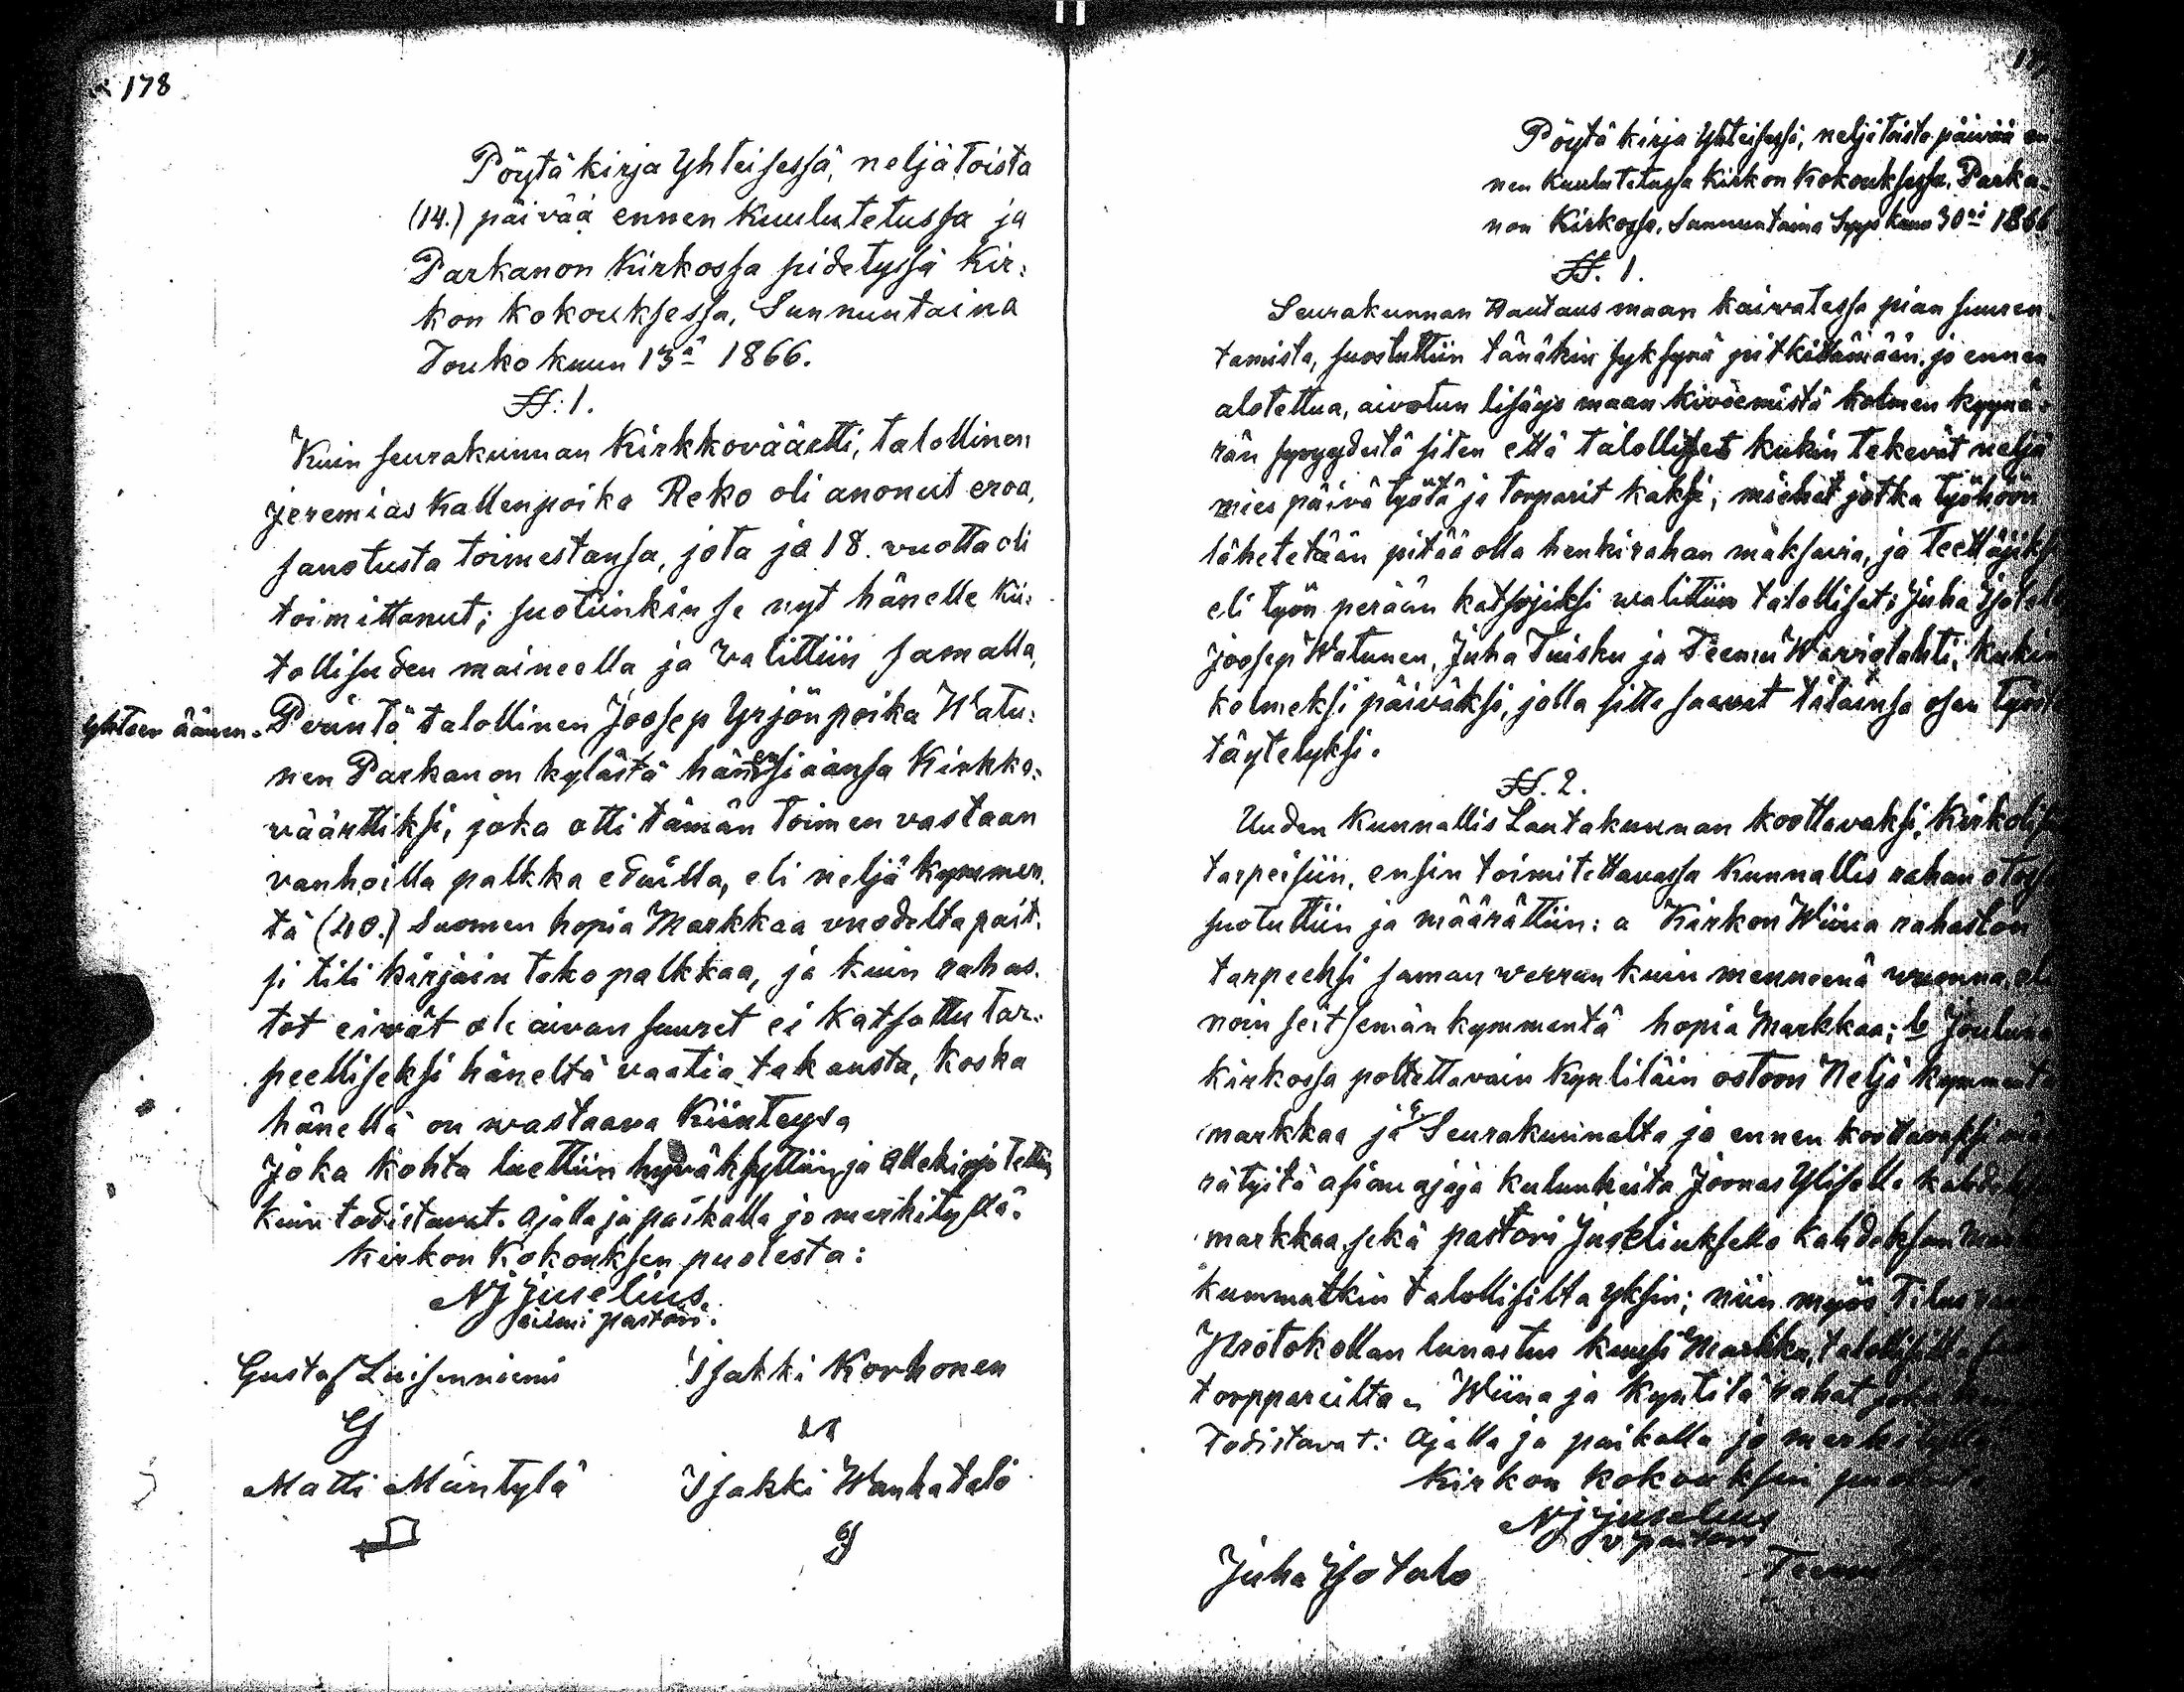 178
Pöytä kirja Yhteisessä, neljätoista
(14.) päivää ennen kuulutetussa ja
Parkanon Kirkossa pidetyssä Kir:
kon kokouksessa, Sunnuntaina
Toukokuun 13ä 1866.
§§: 1.
Kuin seurakunnan Kirkkoväärtti, talollinen
Jeremias Kallenpoika Reko oli anonut eroa,
sanotusta toimestansa, jota jo 18. vuotta oli
toimittanut; suotiinkin se nyt hänelle Kii:
tollisuden maineella ja Valittiin samalla,
Yhteen äänen. Perintö talollinen Joosep Yrjönpoika Watu:
nen Parkanon kylästä hänen siaansa Kirkko:
väärttiksi, joka otti tämän toimen vastaan
vanhoilla palkka eduilla, eli neljäkymmen.
tä (40.) Suomen hopia Markkaa vuodelta pait.
si tili kirjain teko palkkaa, ja kuin rahas.
tot eivät ole aivan suuret ei katsottu tar:
peelliseksi häneltä vaatia takausta, koska
hänellä on wastaava Kiinteys
Joka kohta luettiin hyväksyttiin ja allekirjotettiin
kuin todistavat. Ajalla ja paikalla jo merkityssä.
Kirkon Kokouksen puolesta:
NJ Juselius
pastori.
Gustaf Luisenniemi Isakki Korhonen
Matti Mäntylä Isakki Wanhatalo
Pöytä kirja Yhteisessä, neljätoista päivää en
nen kuulutetussa Kirkon Kokouksessa, Parka-
non Kirkossa, Sunnuntaina Syys kuun 30nä 1866
§§. 1.
Seurakunnan Hautausmaan kaivatessa pian suuren
tamista, suostuttiin tänäkin syksynä pitkittämään, jo ennen
alotettua, aivotun lisäys maan kivöemistä kolmen kyynä:
rän syvyydestä siten että talolliset kukin tekevät neljä
mies päivä työtä ja torparit kaksi; miehet jotka työhön
lähetetään pitää olla henkirahan maksavia, ja teettäjiksi
eli työn perään katsojiksi walittiin talolliset: Juha Isotalo
Joosep Watunen, Juha Tuisku ja Teemu Warvialahti, kukin
kolmeksi päiväksi, jolla sitte saavat tilainsa osan työstä
täytetyksi.
§§. 2.
Uuden Kunnallis Lautakunnan koottavaksi, Kirkolis
tarpeisiin, ensin toimitettavassa Kunnallis rahan otossa
suotuttiin ja määrättiin: a Kirkon Wiina rahaston
tarpeeksi saman werran kuin menneenä wuonna, eli
noin seitsemänkymmentä hopia Markkaa; b Jouluna
kirkossa poltettavain Kynttiläin ostoon Neljä kymmentä
markkaa ja c Seurakunnalta jo ennen koottavaksi mää
rätyitä asian ajaja kulunkeita Joonas Yliselle kahdek
markkaa, sekä pastori Juseliukselle Kahdeksan
kummatkin talollisilta yksin; niin myös
Protokollan lunastus kuusi Markka, talollisilta
torppareilta Wiina ja Kynttilä rahat
Todistavat: Ajalla ja paikalla jo merkitylla
Kirkon kokouksen puolesta
NJ Juselius
v pastori
Juha Isotalo Teemu